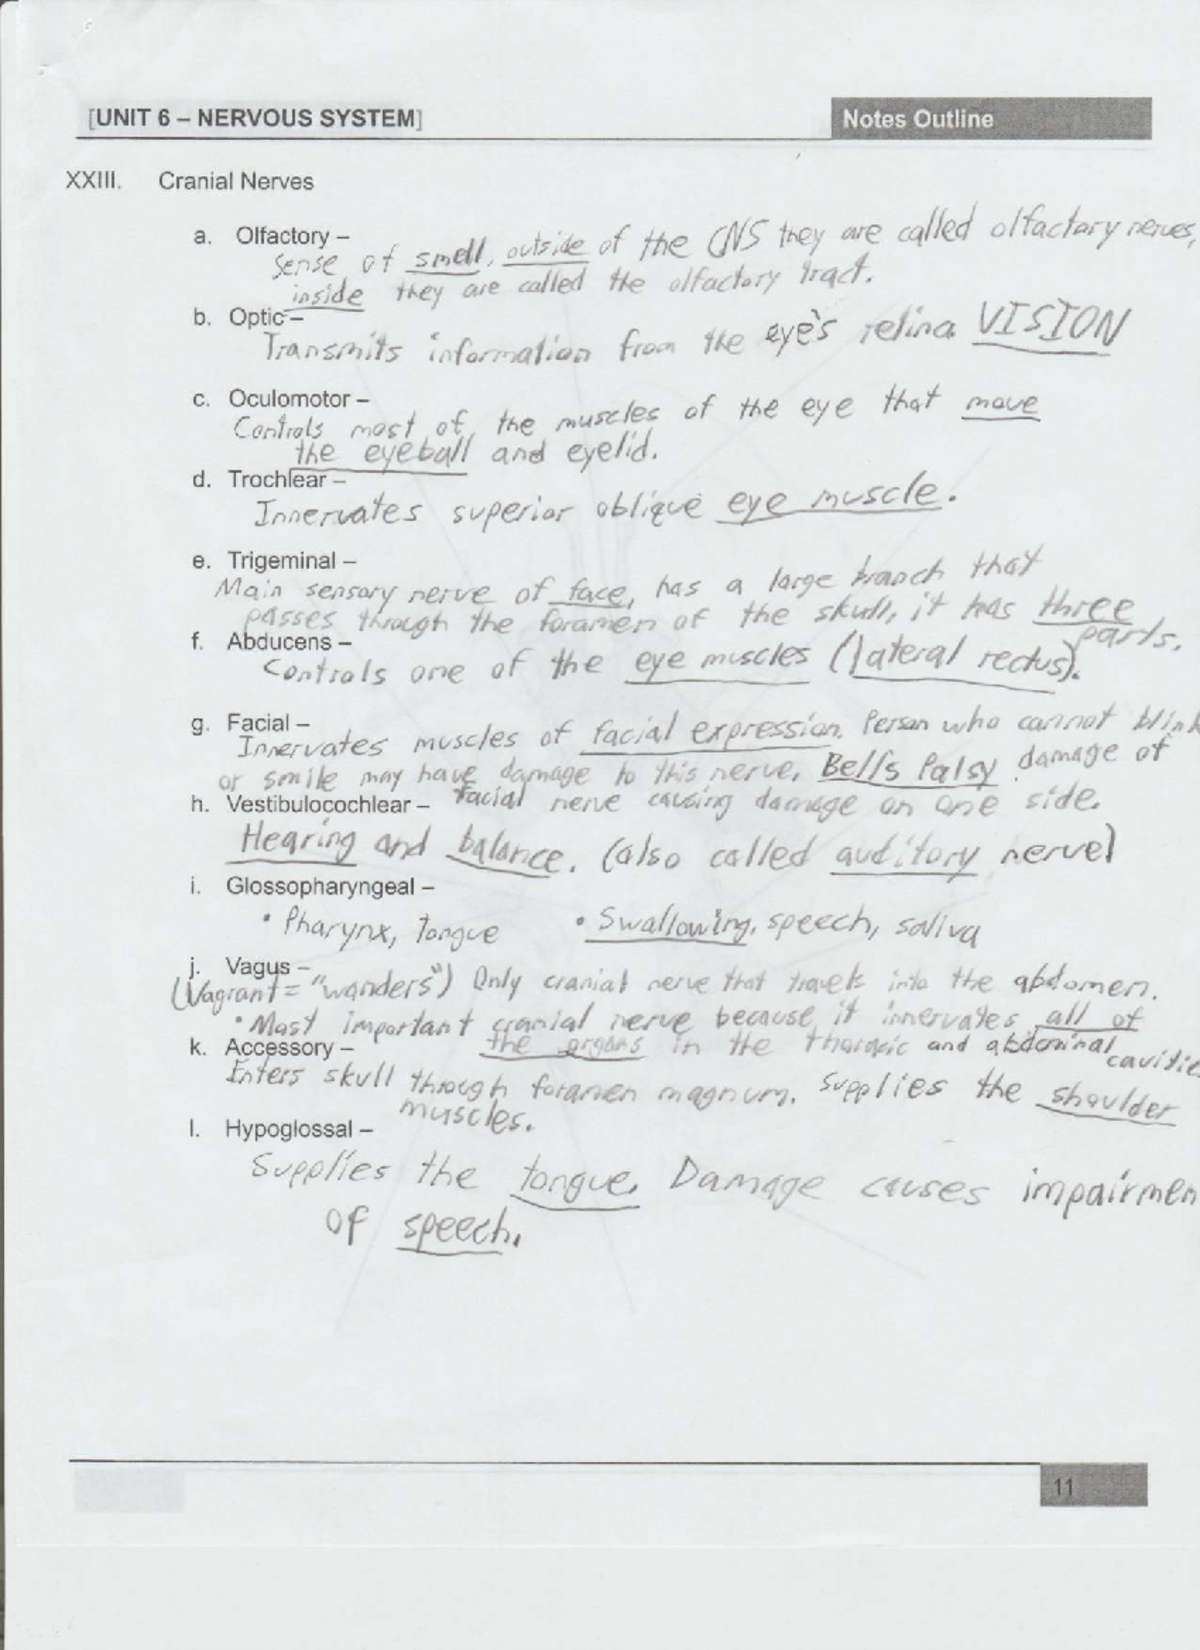 [UNIT 6 – NERVOUS SYSTEM]
Notes Outline
XXIII. Cranial Nerves
a. Olfactory –
sense of smell, outside of the CNS they are called olfactory nerves,
inside they are called the olfactory tract.
b. Optic –
Transmits information from the eye's retina VISION
c. Oculomotor –
Controls most of the muscles of the eye that move
the eyeball and eyelid.
d. Trochlear –
Innervates superior oblique eye muscle.
e. Trigeminal –
Main sensory nerve of face, has a large branch that
passes through the foramen of the skull, it has three
parts.
f. Abducens –
Controls one of the eye muscles (lateral rectus).
g. Facial –
Innervates muscles of facial expression. Person who cannot blink
or smile may have damage to this nerve. Bell's Palsy damage of
facial nerve causing damage on one side.
h. Vestibulocochlear –
Hearing and balance. (also called auditory nerve)
i. Glossopharyngeal –
• Pharynx, tongue • Swallowing, speech, saliva
j. Vagus –
(Vagrant = "wanders") Only cranial nerve that travels into the abdomen.
• Most important cranial nerve because it innervates all of
the organs in the thoracic and abdominal cavitie
k. Accessory –
Enters skull through foramen magnum. Supplies the shoulder
muscles.
l. Hypoglossal –
Supplies the tongue. Damage causes impairmen
of speech.
11